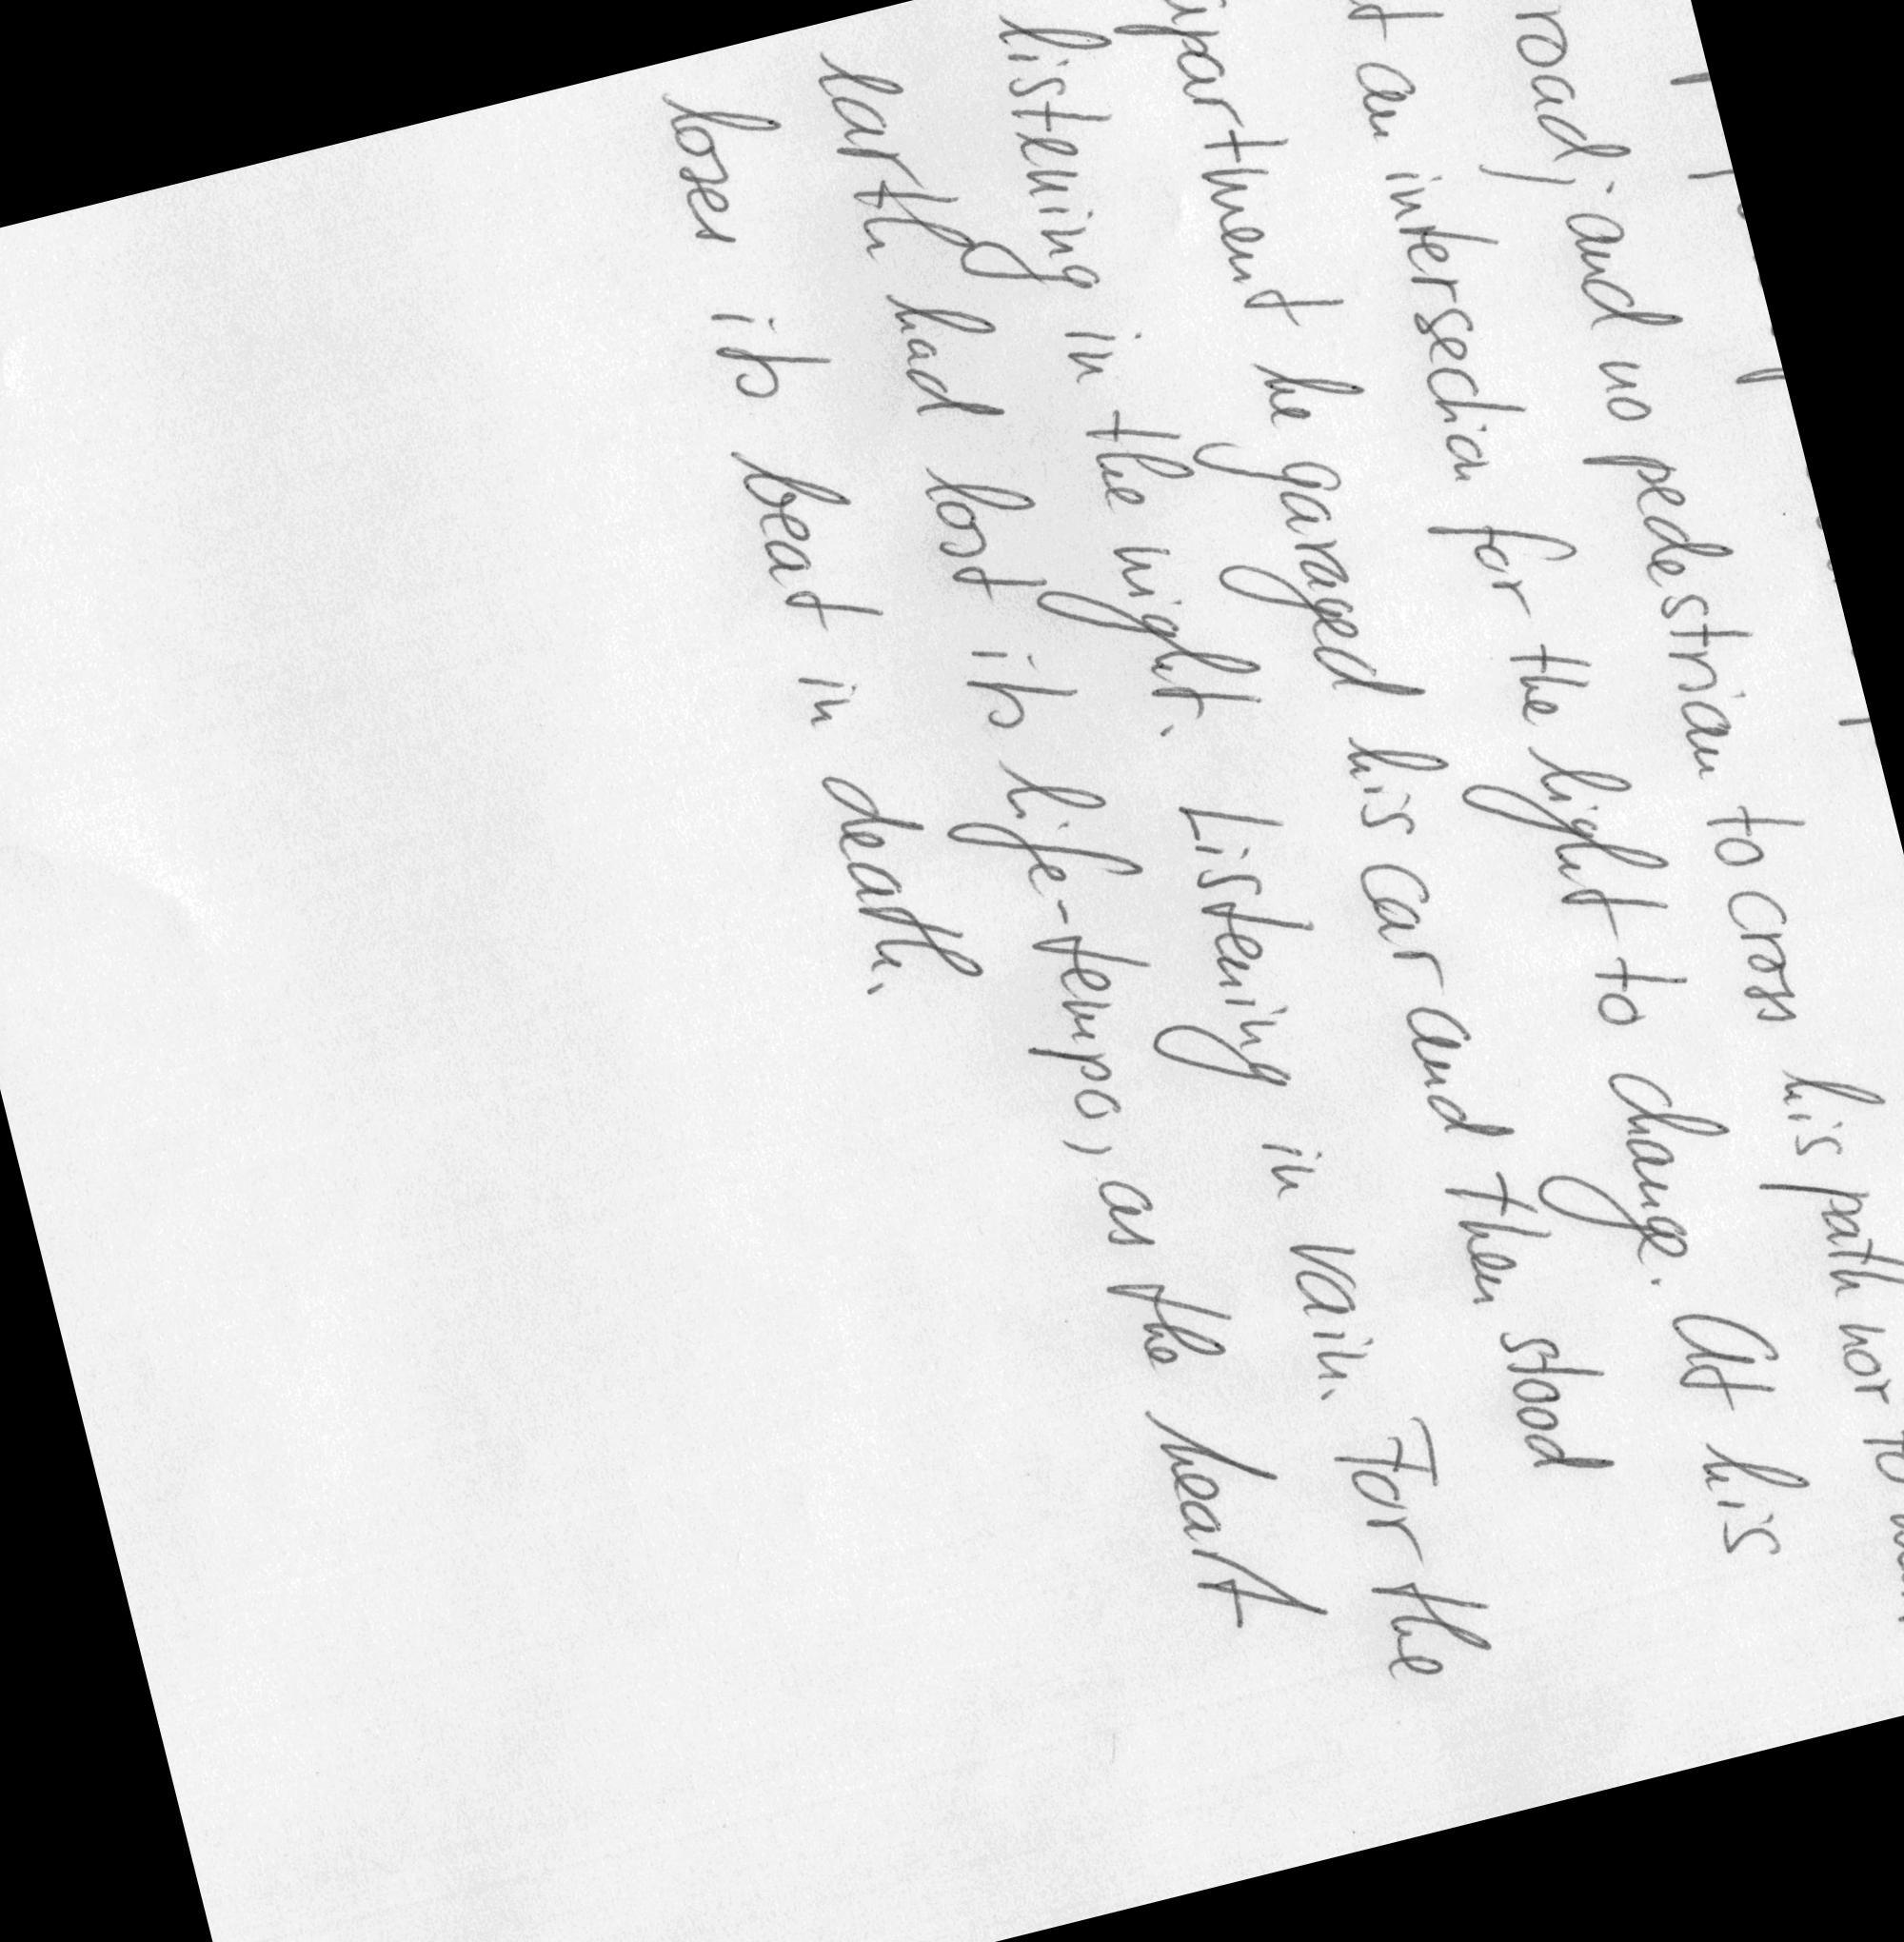 road; and no pedestrian to cross his path nor to
an intersection for the light to change. At his
apartment he garaged his car and then stood
listening in the night. Listening in vain. For the
earth had lost its life-tempo, as the heart
loses its beat in death.